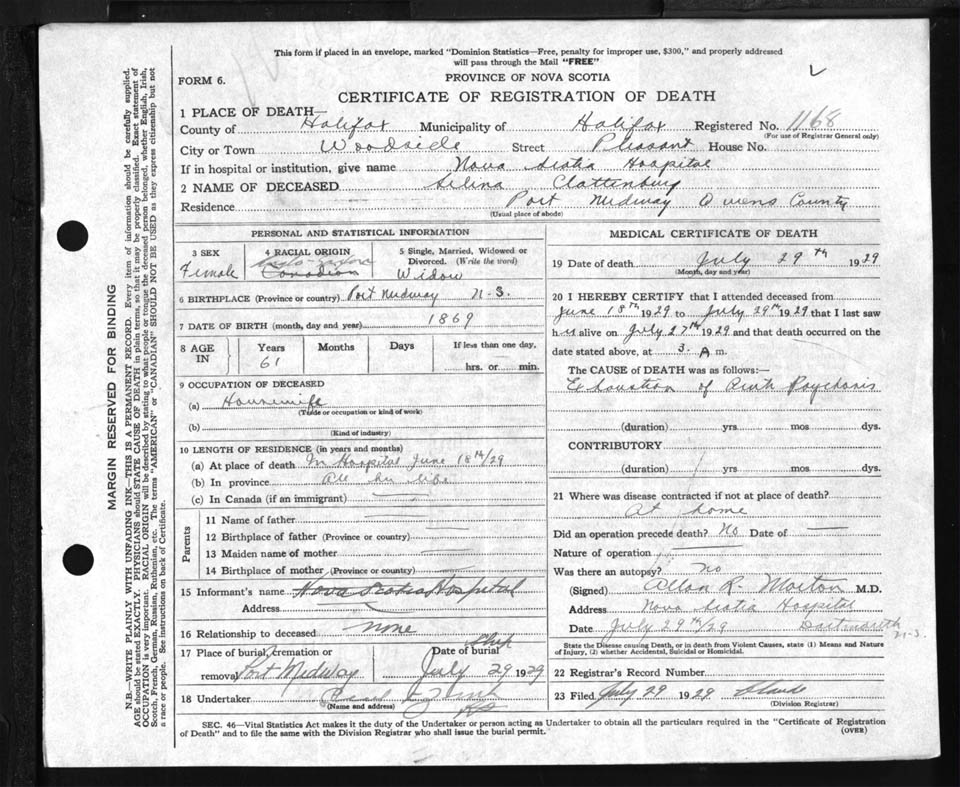 This form if placed in an envelope, marked "Dominion Statistics—Free, penalty for improper use, $300," and properly addressed
will pass through the Mail "FREE"
FORM 6.
PROVINCE OF NOVA SCOTIA
CERTIFICATE OF REGISTRATION OF DEATH
1 PLACE OF DEATH—
County of Halifax Municipality of Halifax Registered No. 1168
(For use of Registrar General only)
City or Town Woodside Street Pleasant House No.
If in hospital or institution, give name Nova Scotia Hospital
2 NAME OF DECEASED Selina Clattenburg
Residence Port Medway Qwens County
(Usual place of abode)
PERSONAL AND STATISTICAL INFORMATION
3 SEX
Female
4 RACIAL ORIGIN
Canadian
5 Single, Married, Widowed or
Divorced. (Write the word)
Widow
6 BIRTHPLACE (Province or country) Port Medway N.S.
7 DATE OF BIRTH (month, day and year) 1869
8 AGE
IN
Years
61
Months
Days
If less than one day,
hrs. or min.
9 OCCUPATION OF DECEASED
(a) Housewife
(Trade or occupation or kind of work)
(b)
(Kind of industry)
10 LENGTH OF RESIDENCE (in years and months)
(a) At place of death In Hospital June 18th/29
(b) In province all her life
(c) In Canada (if an immigrant)
Parents
11 Name of father
12 Birthplace of father (Province or country)
13 Maiden name of mother
14 Birthplace of mother (Province or country)
15 Informant's name Nova Scotia Hospital
Address
16 Relationship to deceased none
17 Place of burial, cremation or
removal Port Medway
Date of burial
July 29 1929
18 Undertaker
(Name and address)
MEDICAL CERTIFICATE OF DEATH
19 Date of death July 29th 1929
(Month, day and year)
20 I HEREBY CERTIFY that I attended deceased from
June 18th 1929 to July 29th 1929 that I last saw
h er alive on July 27th 1929 and that death occurred on
the date stated above, at 3. A m.
The CAUSE of DEATH was as follows:—
Exhaustion of Psychosis
(duration) yrs mos dys.
CONTRIBUTORY
(duration) yrs. mos. dys.
21 Where was disease contracted if not at place of death?
At home
Did an operation precede death? No Date of
Nature of operation
Was there an autopsy? no
(Signed) Allan R. Morton M.D.
Address Nova Scotia Hospital
Date July 29th/29 Dartmouth
N.S.
State the Disease causing Death, or in death from Violent Causes, state (1) Means and Nature
of Injury, (2) whether Accidental, Suicidal or Homicidal.
22 Registrar's Record Number
23 Filed July 29 1929
(Division Registrar)
SEC. 46—Vital Statistics Act makes it the duty of the Undertaker or person acting as Undertaker to obtain all the particulars required in the "Certificate of Registration
of Death" and to file the same with the Division Registrar who shall issue the burial permit. (OVER)
MARGIN RESERVED FOR BINDING
N.B.—WRITE PLAINLY WITH UNFADING INK—THIS IS A PERMANENT RECORD. Every item of information should be carefully supplied.
AGE should be stated EXACTLY. PHYSICIANS should STATE CAUSE OF DEATH in plain terms, so that it may be properly classified. Exact statement of
OCCUPATION is very important. RACIAL ORIGIN will be described by stating to what people or tongue the deceased person belonged, whether English, Irish,
Scotch, French, German, Russian, Ruthenian, etc. The terms "AMERICAN" or "CANADIAN" SHOULD NOT BE USED as they express citizenship but not
a race or people. See instructions on back of Certificate.